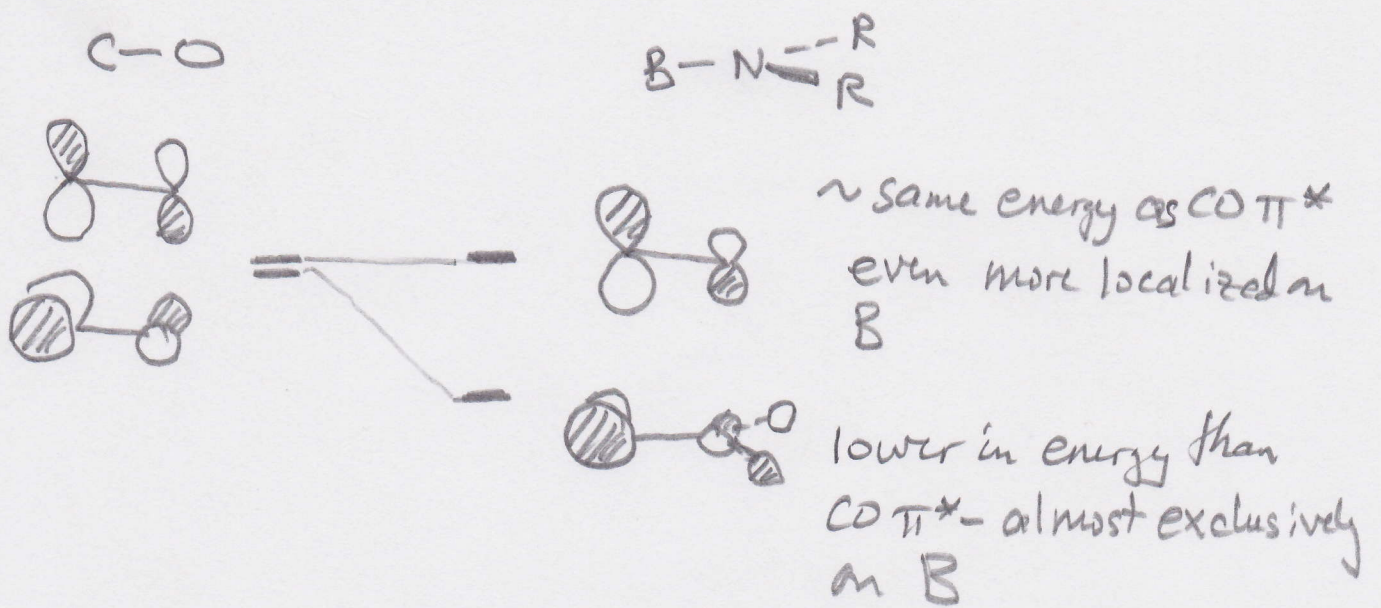 C–O
B–N
R
R
~ same energy as CO π*
even more localized on
B
lower in energy than
CO π* – almost exclusively
on B